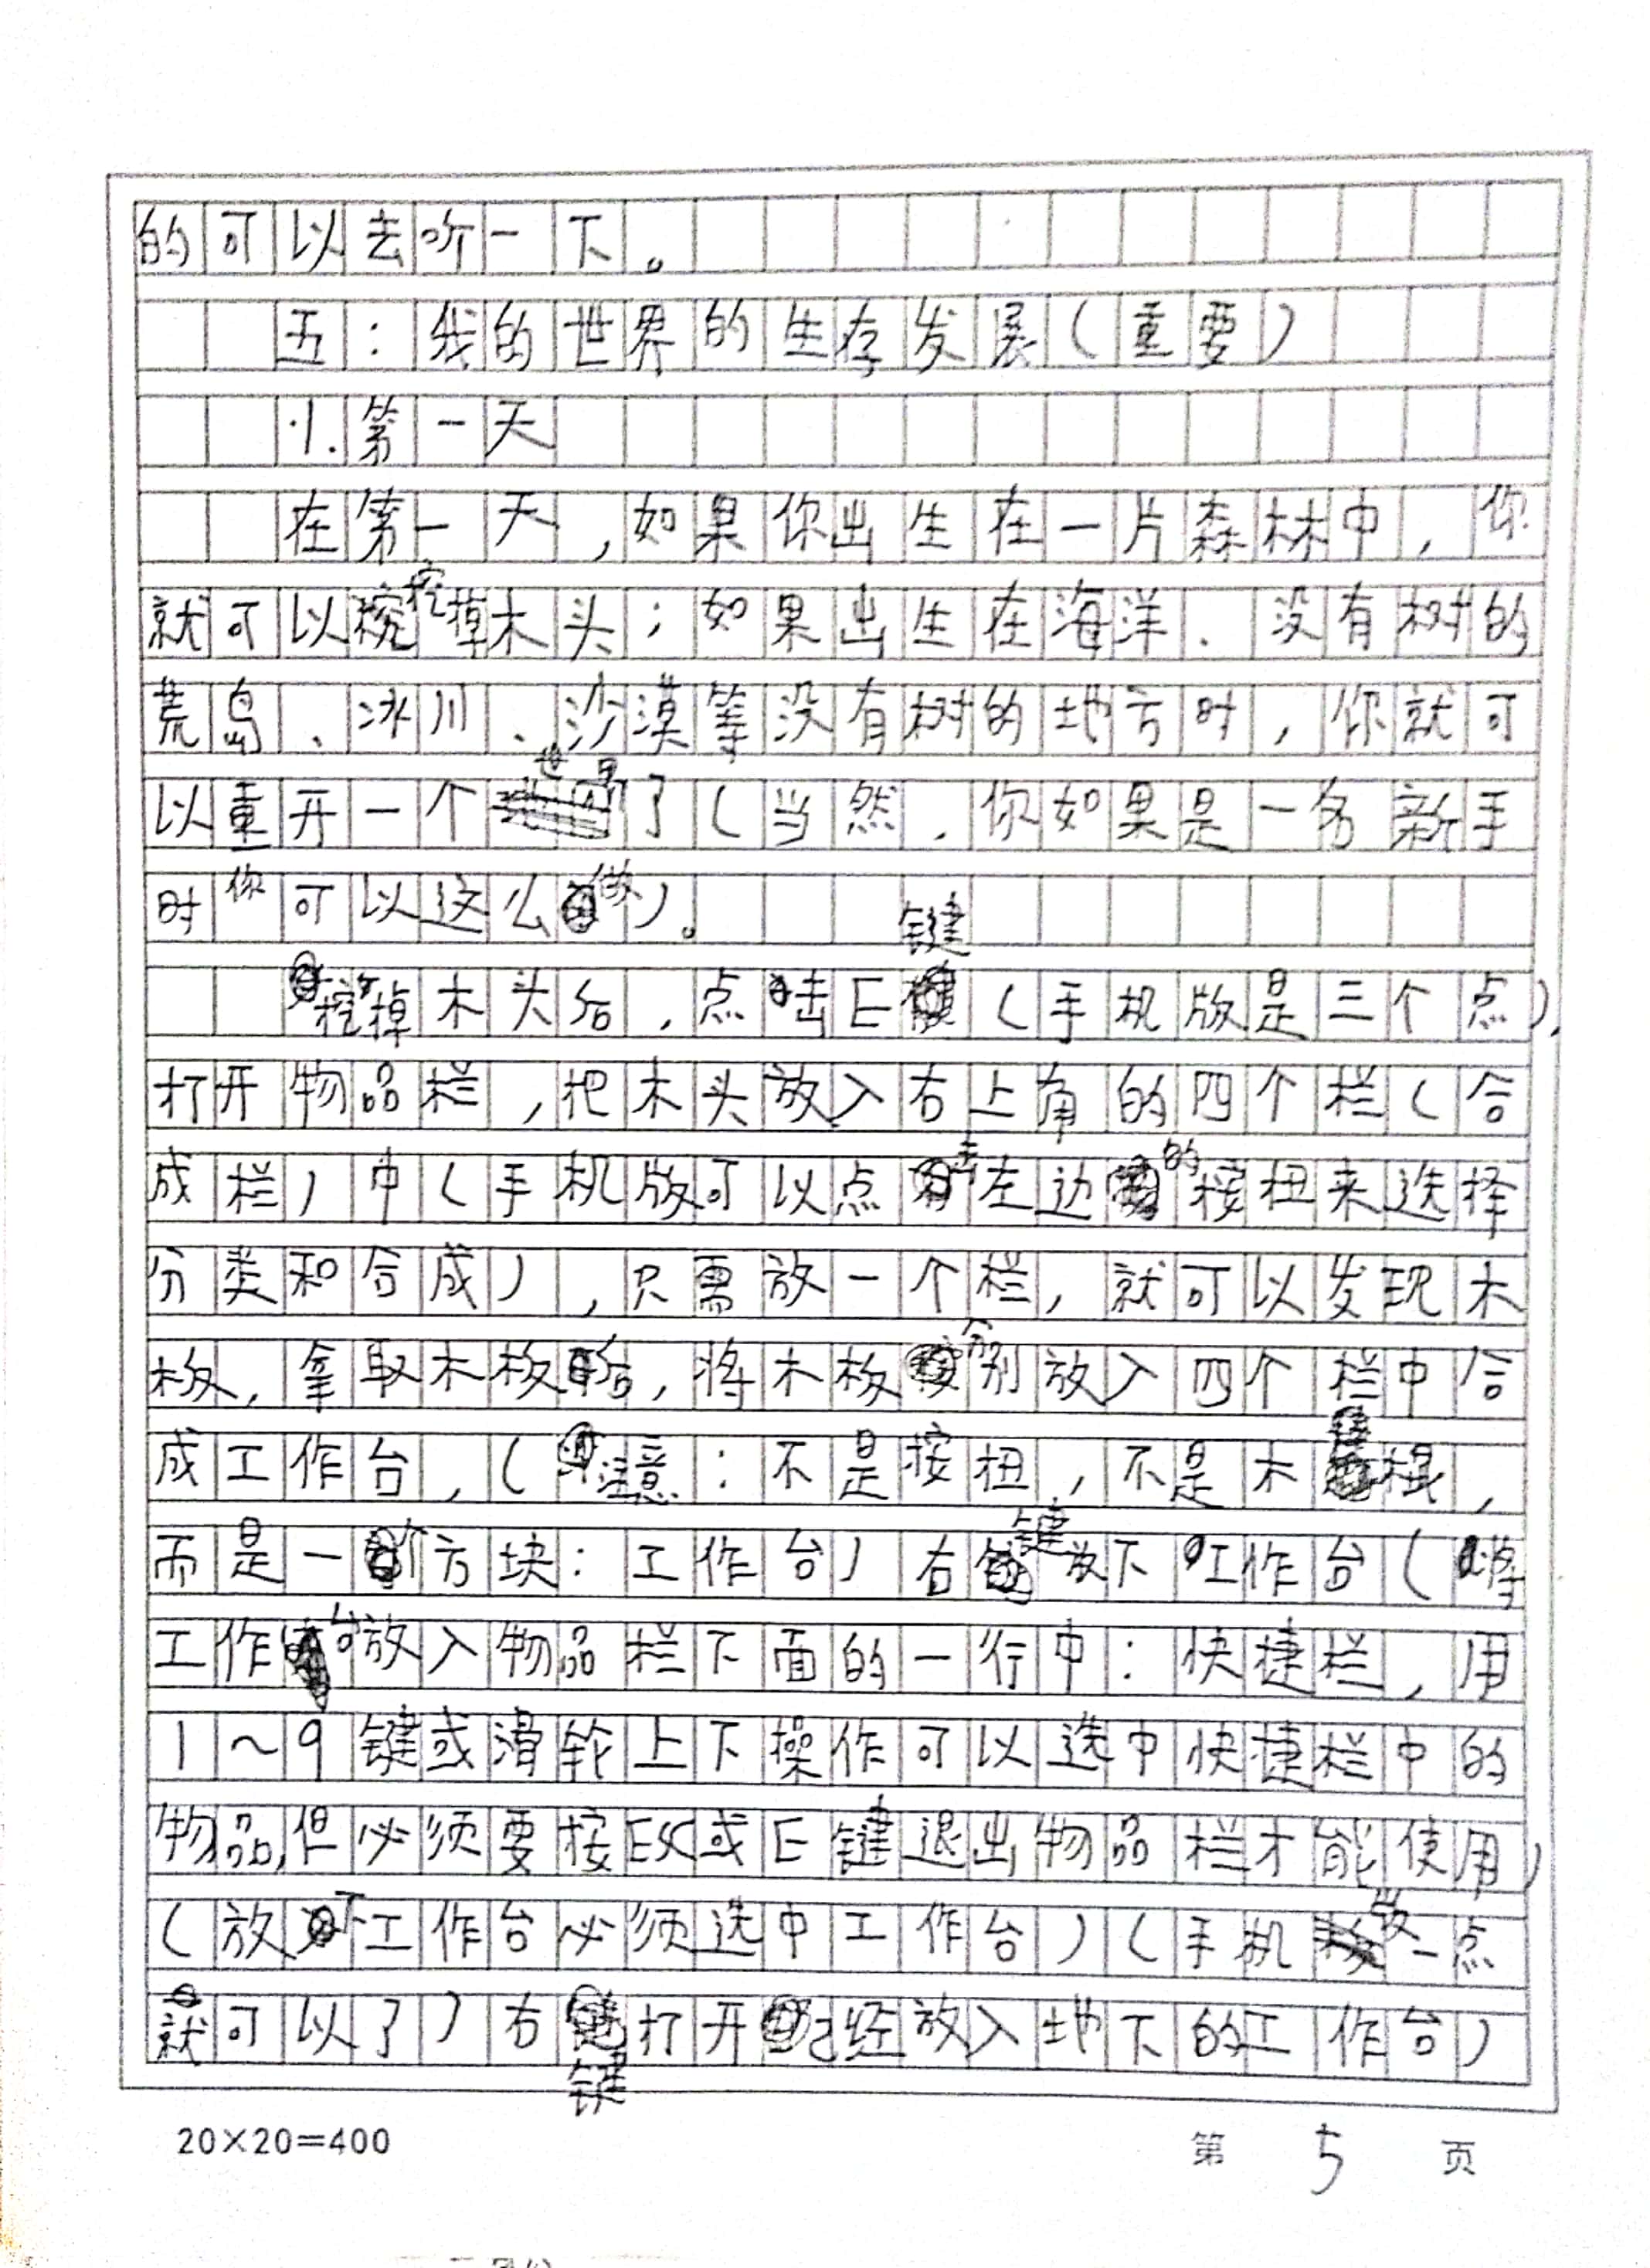 的可以去听一下。
五：我的世界的生存发展（重要）
1.第一天
在第一天，如果你出生在一片森林中，你
就可以挖掉木头；如果出生在海洋、没有树的
荒岛、冰川、沙漠等没有树的地方时，你就可
以重开一个世界了（当然，你如果是一名新手
时你可以这么做）。
挖掉木头后，点击E键（手机版是三个点），
打开物品栏，把木头放入右上角的四个栏（合
成栏）中（手机版可以点左边的按扭来选择
分类和合成），只需放一个栏，就可以发现木
板，拿取木板后，将木板分别放入四个栏中合
成工作台，（注意：不是按扭，不是木棍，
而是一个方块：工作台）右键放下工作台（将
工作台放入物品栏下面的一行中：快捷栏，用
1～9键或滑轮上下操作可以选中快捷栏中的
物品，但必须要按ESC或E键退出物品栏才能使用）
（放下工作台必须选中工作台）（手机版一点
就可以了）右键打开已经放入地下的工作台）
20×20＝400
第5页